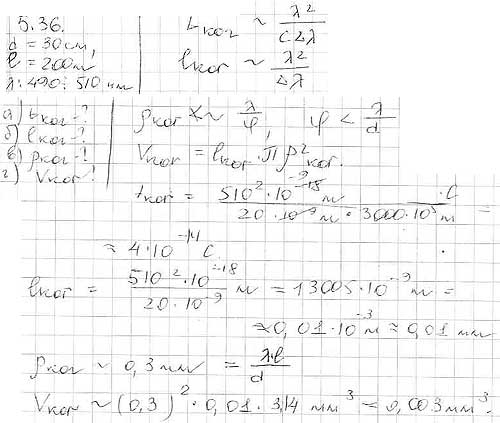 5.36.
d = 30 см,
l = 200 м
λ: 490 ÷ 510 нм
а) tког - ?
б) lког - ?
в) ρког - ?
г) Vког ?
tког ~ λ² / cΔλ
lког ~ λ² / Δλ
ρког ~ λ / φ, φ < λ / d
Vког = lког · π ρ²ког.
tког = 510² · 10⁻¹⁸ м · с / 20 · 10⁻⁹ м · 3000 · 10⁵ м =
= 4 · 10⁻¹⁴ с.
lког = 510² · 10⁻¹⁸ / 20 · 10⁻⁹ м = 13005 · 10⁻⁹ м =
≈ 0,01 · 10⁻³ м ≈ 0,01 мм
ρког ~ 0,3 мм = λ·l / d
Vког ~ (0,3)² · 0,01 · 3,14 мм³ = 0,003 мм³.